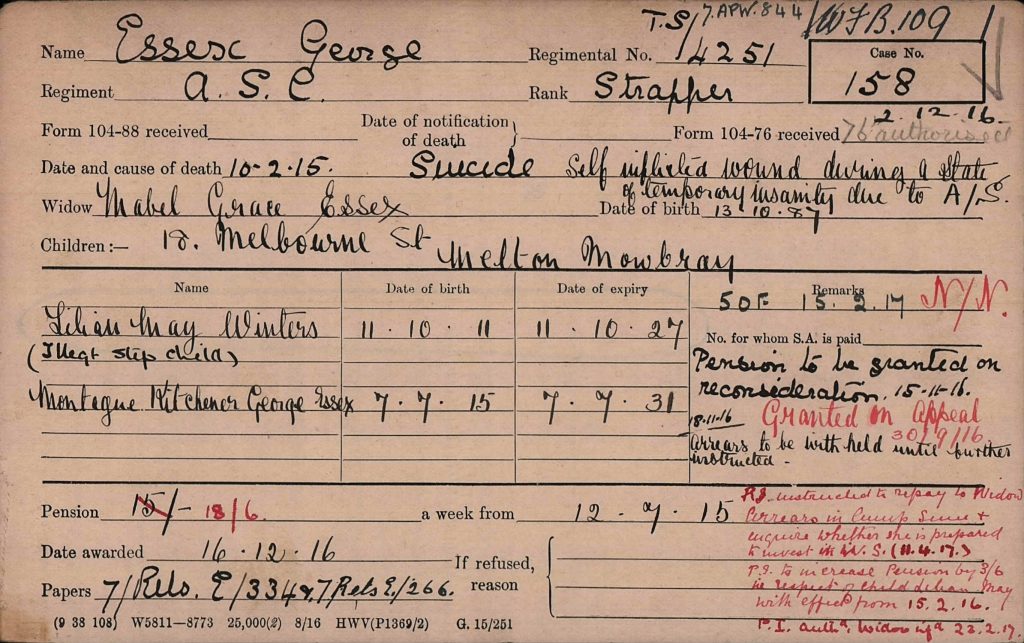 T.S/ 7.APW.844 WFB.109
Name Essex George Regimental No. 4251 Case No.
158
Regiment A. S. C. Rank Strapper
2.12.16.
Form 104-88 received Date of notification of death } Form 104-76 received 76 authorised
Date and cause of death 10-2-15. Suicide Self inflicted wound during a state
of temporary insanity due to A/S.
Widow Mabel Grace Essex Date of birth 13 10.87
Children:— 18. Melbourne St Melton Mowbray
Name Date of birth Date of expiry Remarks
SOF 15.2.17 N/N.
Lilian May Winters 11 . 10 . 11 11 . 10 . 27
(Illegt step child)
No. for whom S.A. is paid
Pension to be granted on
reconsideration. 15-11-16.
Montague Kitchener George Essex 7 . 7 . 15 7 . 7 . 31
18-11-16 Granted on Appeal
30/9/16.
Arrears to be with held until further
instructed -
Pension 15/- 18/6. a week from 12 . 7 . 15
Date awarded 16 . 12 . 16 If refused, reason
Papers 7/Rels. E/334 & 7/Rels E/266.
P.I. instructed to repay to Widow
Arrears in Lump Sum &
enquire whether she is prepared
to invest in W. S. (11.4.17.)
P.I. to increase Pension by 3/6
in respect of child Lilian May
with effect from 15.2.16.
P.I. auth. Widow 22.2.17.
(9 38 108) W5811—8773 25,000(2) 8/16 HWV(P1369/2) G. 15/251